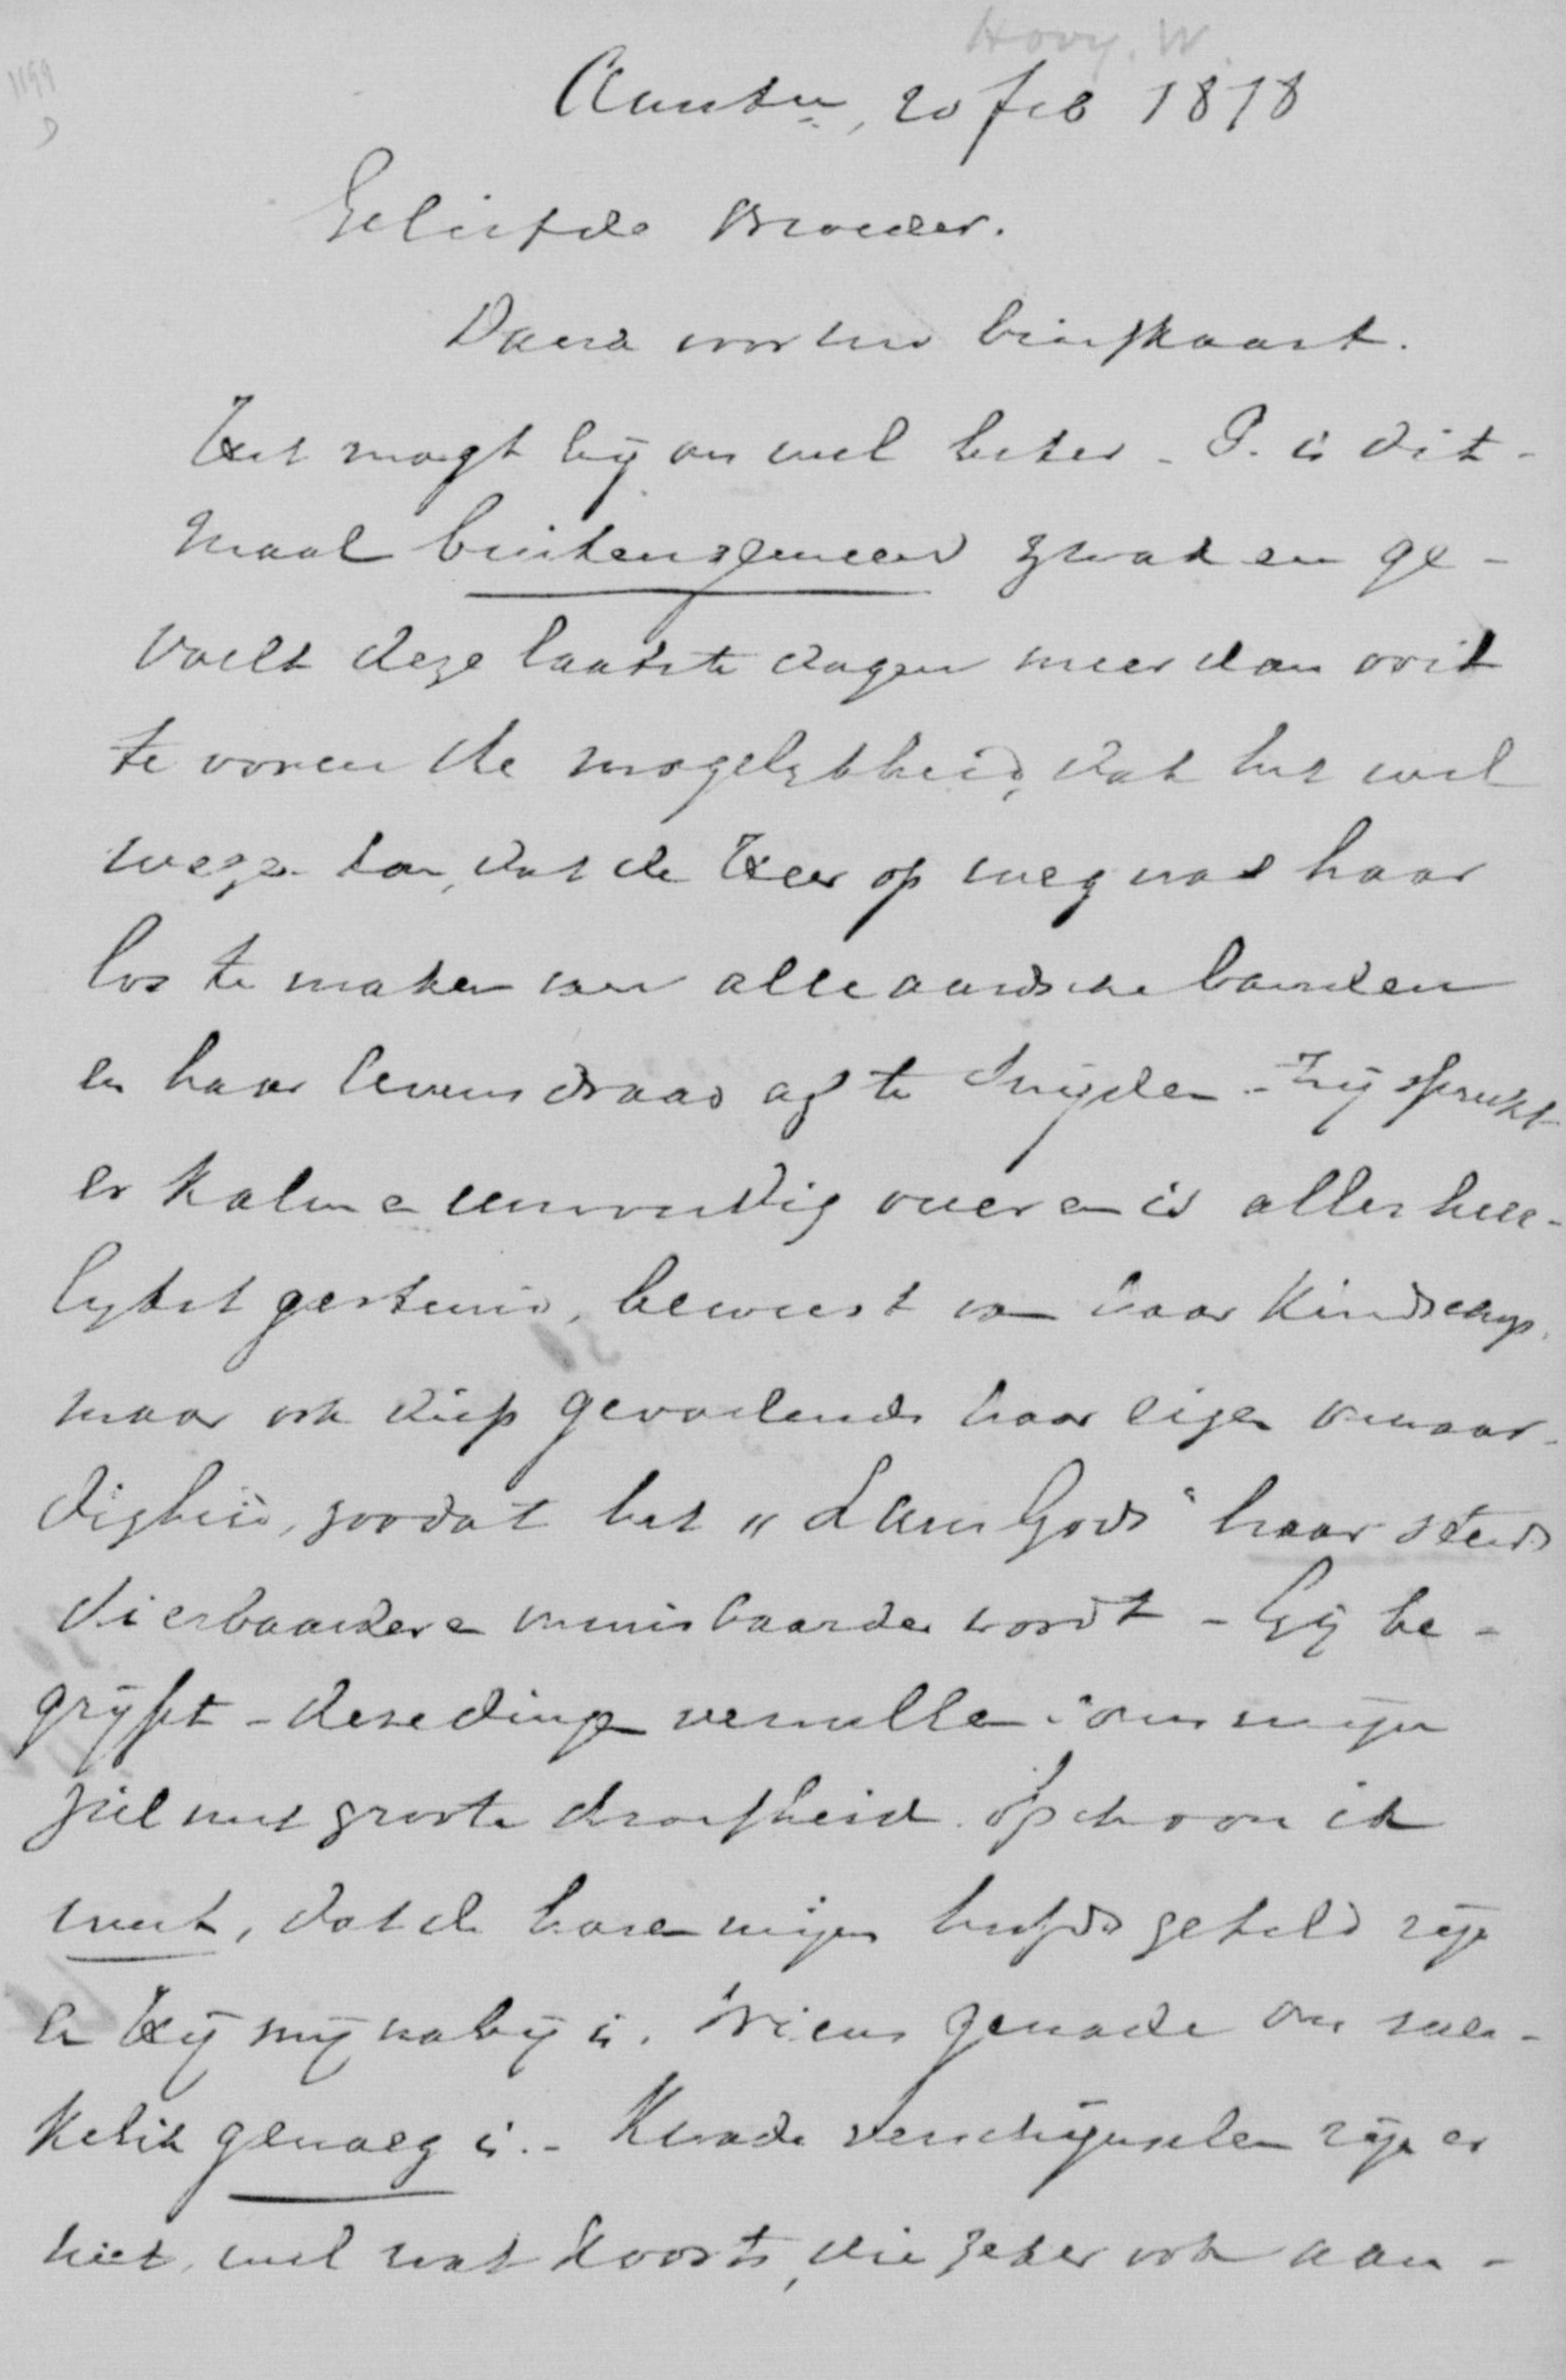 Hovy. W.
1199
Amster, 20 feb 1878
Geliefde Broeder.
Dank voor uw briefkaart.
Het mogt bij ons wel beter - P. is dit-
maal buitengemeen zwak en ge-
voelt deze laatste dagen meer dan ooit
te voren de mogelykheid, dat het wel
wezen kon, dat de Heer op weg was haar
los te maken van alle aardsche banden
en haar levensdraad af te snyden - Zij spreekt
er kalm en eenvoudig over en is allerheer-
lykst gesteund, bewust van haar kindschap,
maar ook diep gevoelende haar eigen onwaar-
digheid, zoodat het "Lam Gods" haar steeds
dierbaarder en onmisbaarder wordt - Gij be-
grypt - deze dingen vervullen soms mijn
ziel met groote droefheid. Ofschoon ik
weet, dat de haren mijns hoofds geteld zijn
en Hij mij nabij is. Wiens genade ons wer-
kelik genoeg is. - Kwade verschijnselen zijn er
niet, wel wat koorts, die zeker ook aan-